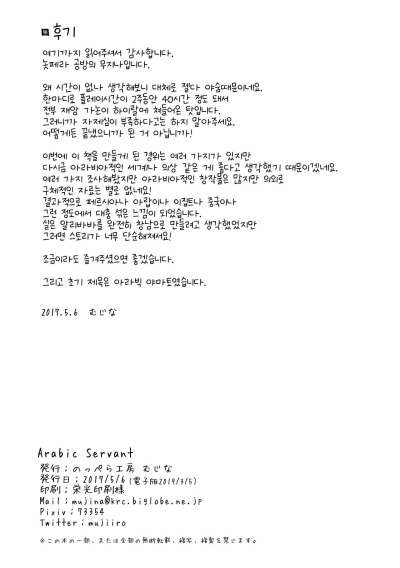 후기
여기까지 읽어주셔서 감사합니다.
놋페라 공방의 무지나입니다.
왜 시간이 없나 생각해보니 대체로 젤다 야숨때문이네요.
한마디로 플레이시간이 2주동안 40시간 정도 돼서
전부 재앙 가논이 하이랄에 쳐들어온 탓입니다.
그러니까 자제심이 부족하다고는 하지 말아주세요.
어떻게든 끝냈으니까 된 거 아닙니까!
이번에 이 책을 만들게 된 경위는 여러 가지가 있지만
다시금 아라비아적인 세계나 의상 같은 게 좋다고 생각했기 때문이겠네요.
여러 가지 조사해봤지만 아라비아적인 창작물은 많지만 의외로
구체적인 자료는 별로 없네요!
결과적으로 페르시아나 아랍이나 이집트나 중국이나
그런 정도에서 대충 섞은 느낌이 되었습니다.
실은 알리바바를 완전히 창남으로 만들려고 생각했었지만
그러면 스토리가 너무 단순해져서요!
조금이라도 즐겨주셨으면 좋겠습니다.
그리고 초기 제목은 아라빅 야마토였습니다.
2017.5.6 むじな
Arabic Servant
発行：のっぺら工房 むじな
発行日：2017/5/6 (電子版2019/3/5)
印刷：栄光印刷様
Mail：mujina@krc.biglobe.ne.jp
Pixiv：73354
Twitter：mujiiro
※この本の一部、または全部の無断転載、複写、複製を禁じます。